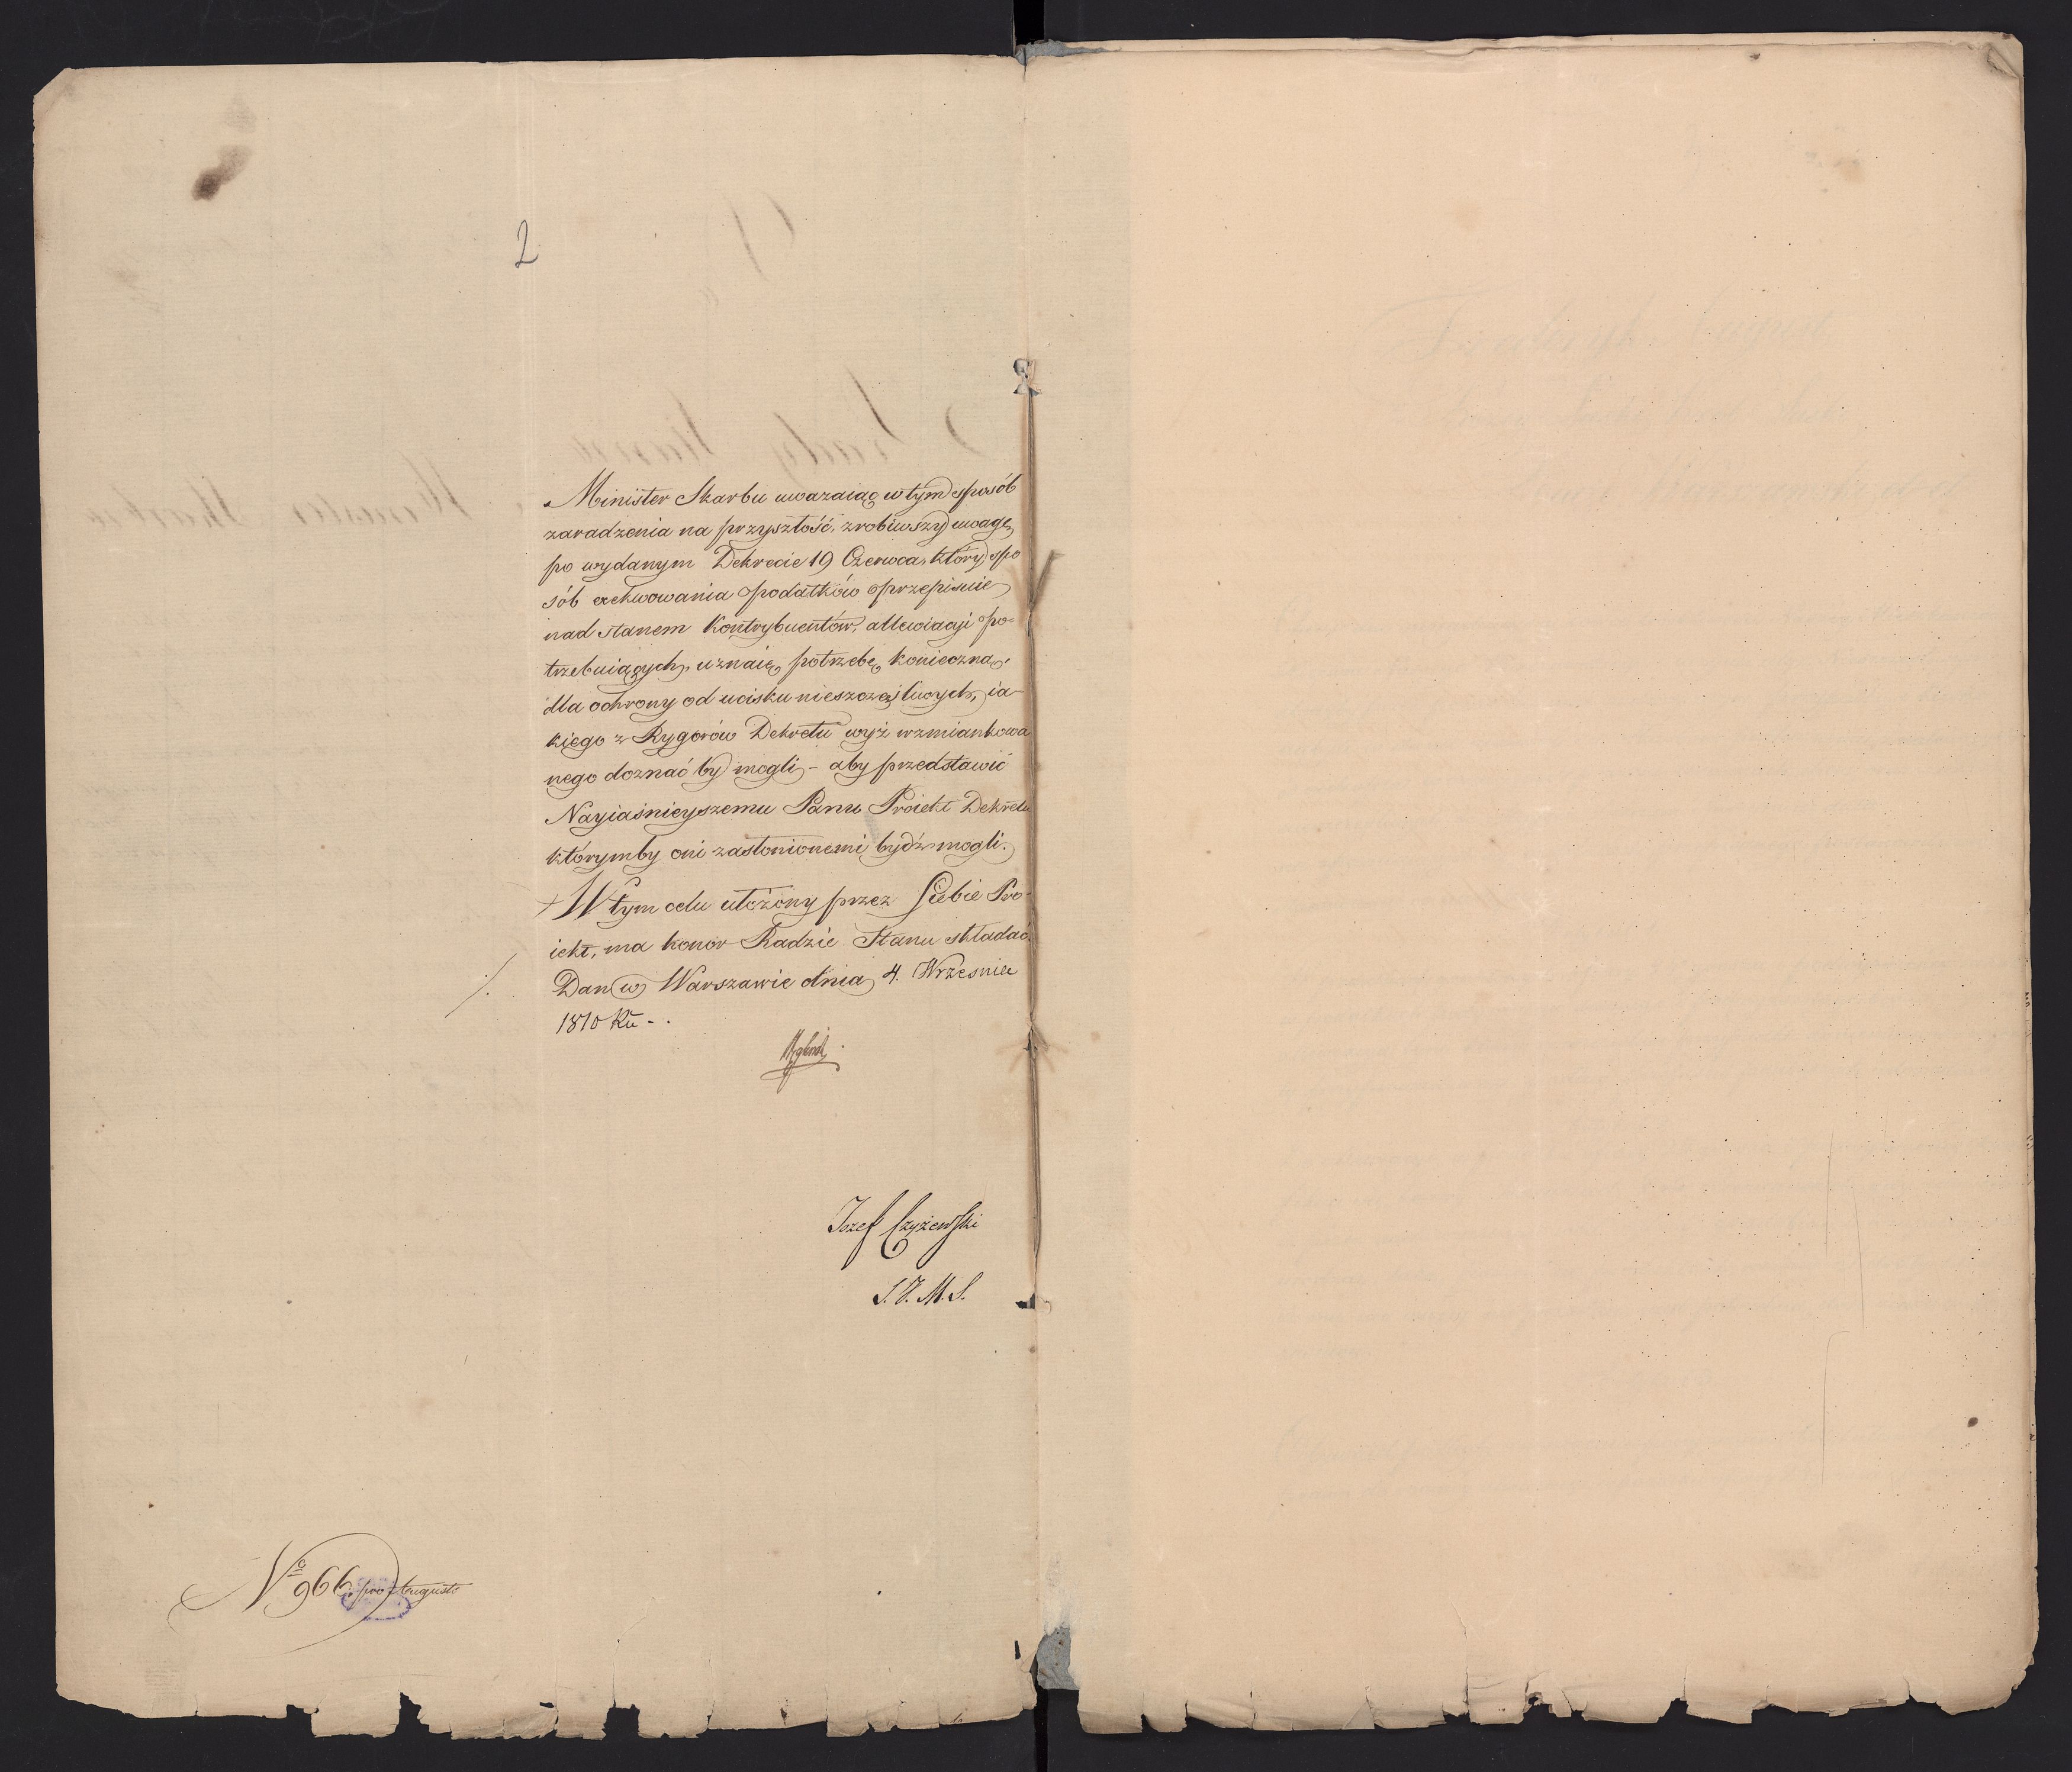 2
Minister Skarbu uważaiąc w tym sposób
zaradzenia na przyszłość, zrobiwszy uwagę,
po wydanym Dekrecie 19 Czerwca, który spo
sób exekwowania podatków przepisuie
nad stanem Kontrybuentów, allewiacyi po-
trzebuiących, uznaie, potrzebę konieczną,
dla ochrony od ucisku nieszczęśliwych, ia-
kiego z Rygorów Dekretu wyż wzmiankowa
nego doznać by mogli - aby przedstawić
Nayiaśnieyszemu Panu Proiekt Dekretu
którymby oni zasłonionemi bydź mogli.
W tym celu ułożony przez Siebie Pro-
iekt, ma honor Radzie Stanu składać.
Dan w Warszawie dnia 4. Wrzesnia
1810 Ru - .
Jozef Czyżewski
S. J. M. S.
No 966 pro Augusto